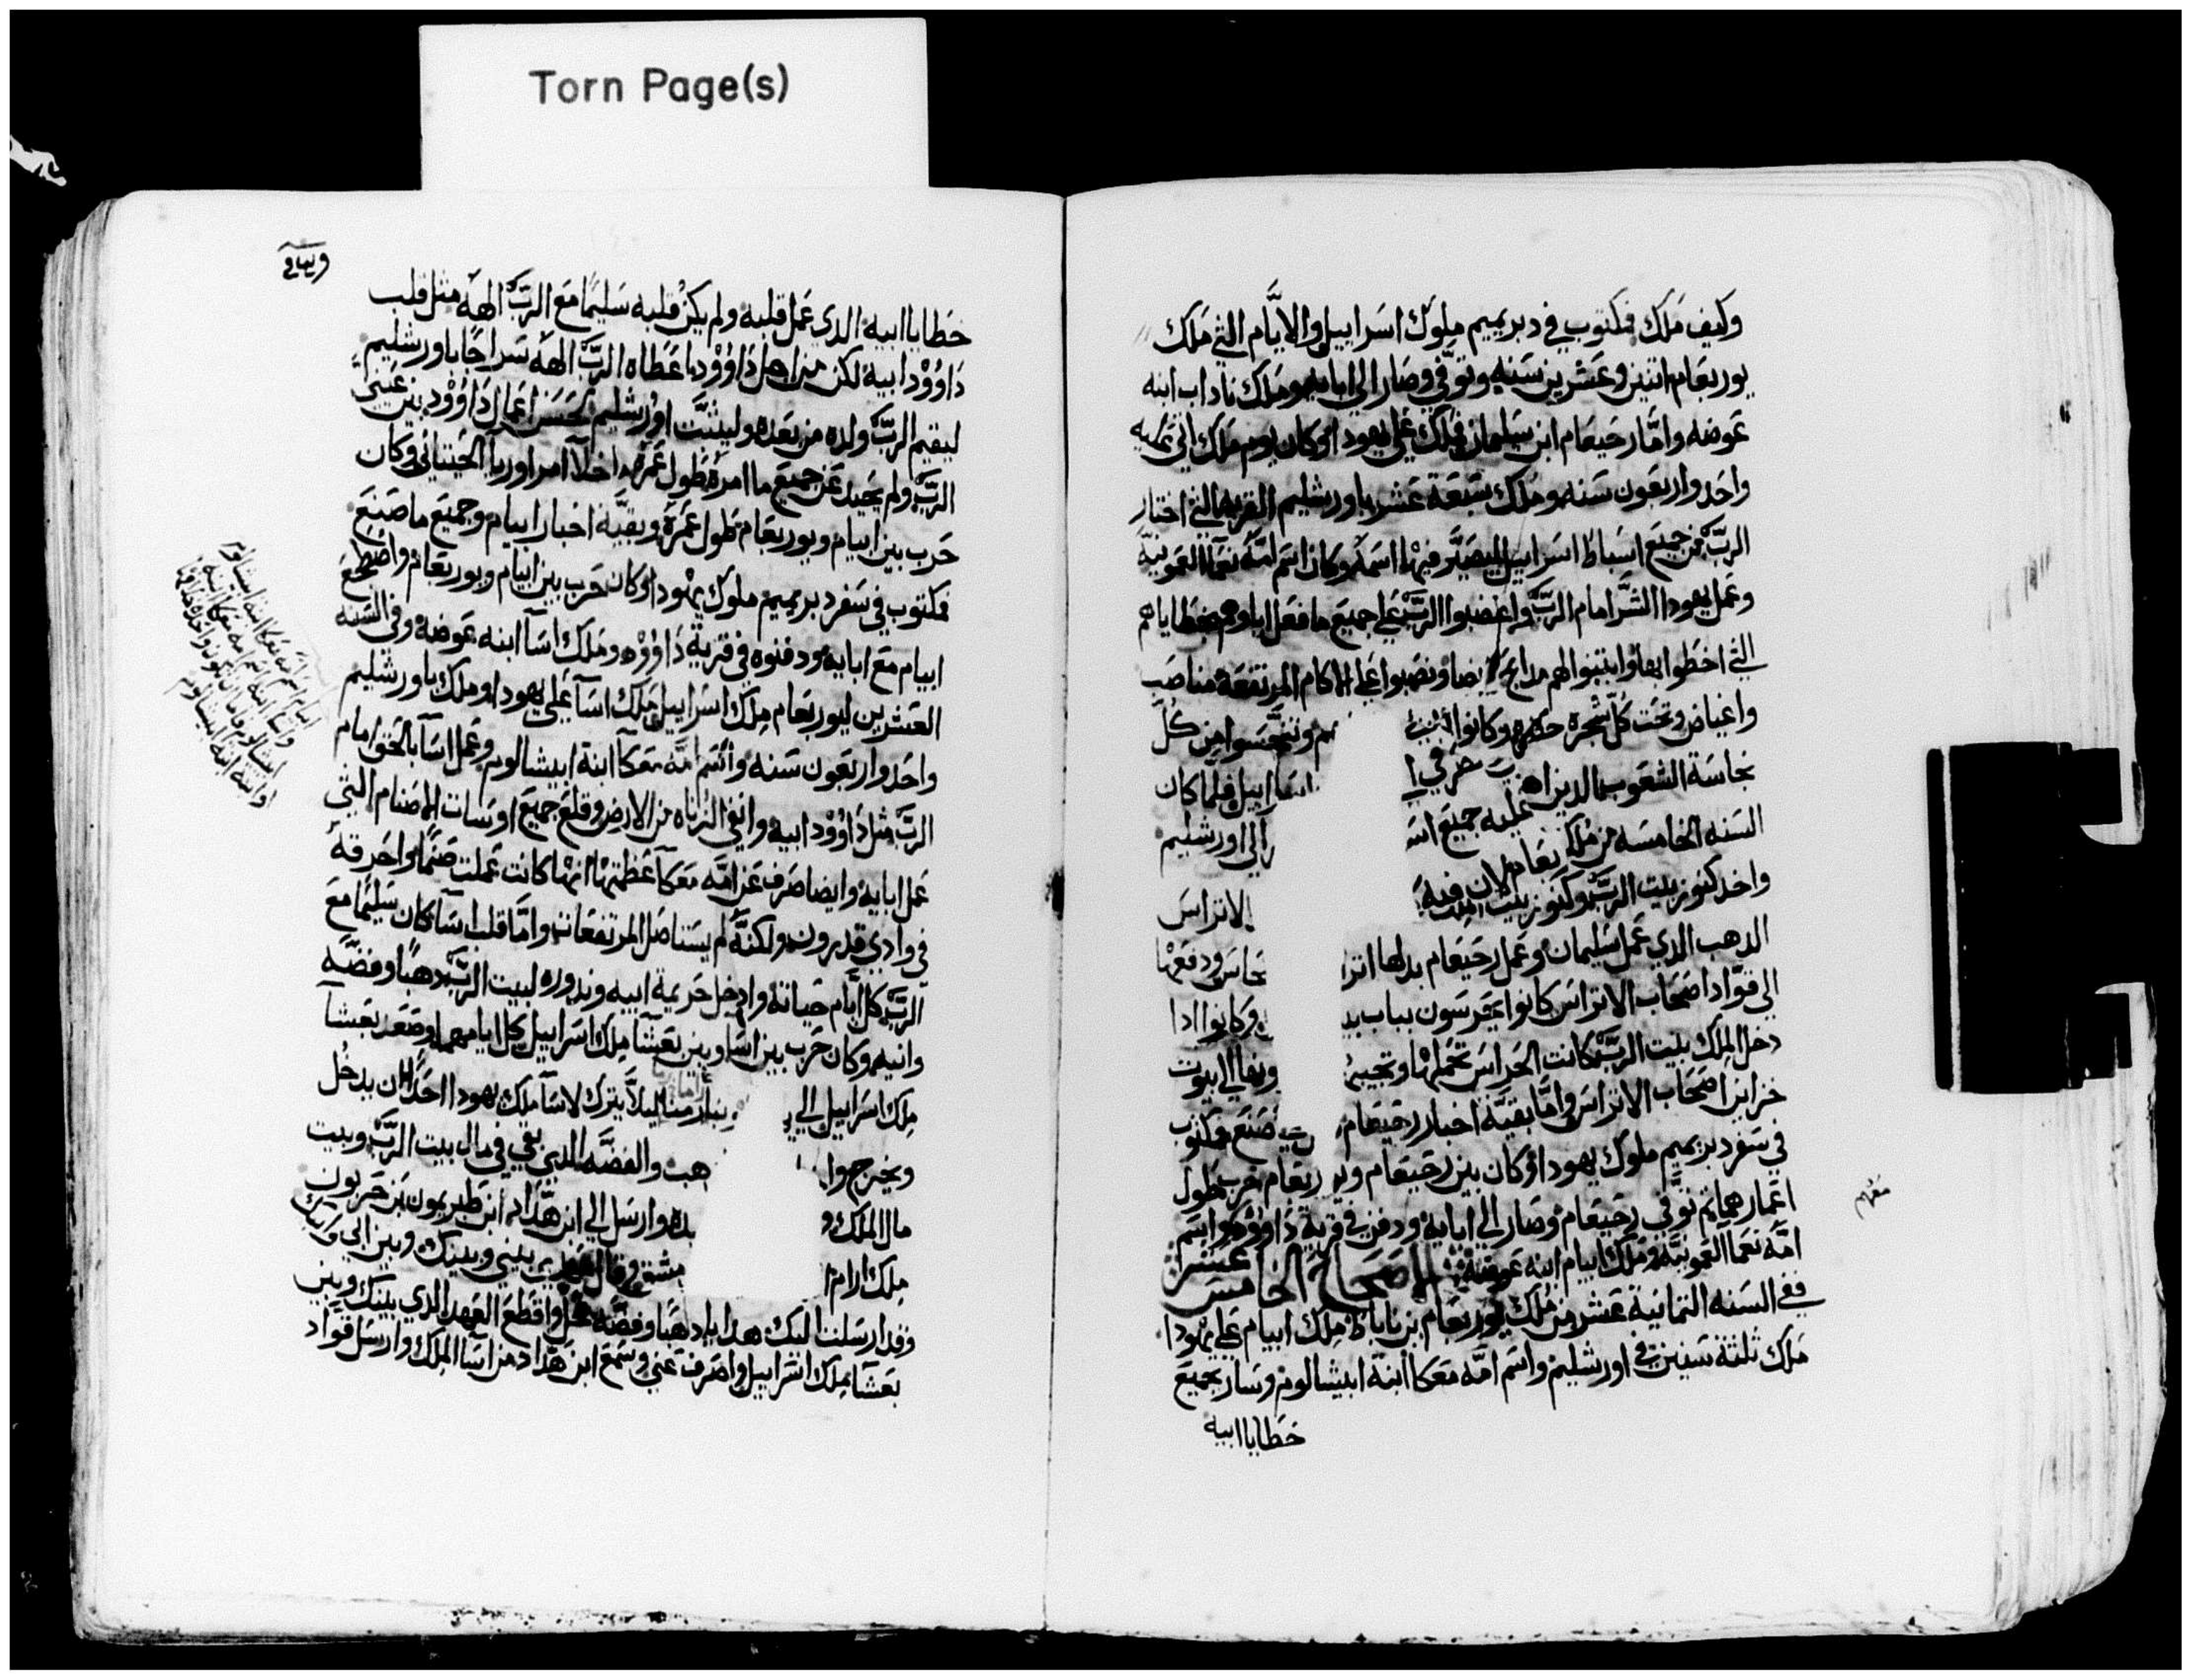 Torn Page(s)
وكيف ملك فمكتوب في دبريميم ملوك اسراييل والايام التي ملك
يوربعام اتنين وعشرين سنه وتوفي وصار الي ابايه وملك ناداب ابنه
عوضه واما رحبعام ابن سليمان فملك علي يهودا وكان يوم ملك اتي عليه
واحد واربعون سنه وملك سبعة عشر باورشليم القريه التي اختار
الرب من جميع اسباط اسراييل ليصير فيها اسمه وكان اسم امه نعما العمونيه
وعمل يهودا الشر امام الرب واغضبوا الرب علي جميع ما فعل اباوهم بخطاياهم
التي اخطوا بها وابتنوا لهم مدابح ايضا ونصبوا علي الاكام المرتفعة مناصب
واغياض وتحت كل شجرة وكانوا وتنجسوا من كل
نجاسة الشعوب الدين اسراييل فلما كان
السنه الخامسه من ملك عليه جميع الي اورشليم
واخد كنوز بيت الرب وكنوز بيت الاتراس
الدهب الدي عمل سليمان وعمل رحبعام بدلها اترا نحاس ودفعها
الي قواد اصحاب الاتراس كانوا يحرسون بباب وكانوا ادا
دخل الملك بيت الرب كانت الحراس تحملها وتجيب الي ابيوت
خزاين اصحاب الاتراس واما بقية اخبار رحبعام صنع فمكتوب
في سفر دبريميم ملوك يهودا وكان بين رحبعام ربعام حرب طول
اعمارهما تم توفي رحبعام وصار الي ابايه ودفن في قرية داوود واسم
امه نعما العمونيه وملك ابيام ابنه عوضه الاصحاح الخامس عشر
ففي السنه التمانية عشر من ملك يوربعام بن ناباط ملك ابيام علي يهودا
ملك تلتة سنين في اورشليم واسم امه معكا ابنة ابيشالوم وسار بجميع
خطايا ابيه
خطايا ابيه الدي عمل قلبه ولم يكن قلبه سليما مع الرب الهه مثل قلب
داوود ابيه لكن من اجل داوود اعطاه الرب الهه سراجا باورشليم
ليقيم الرب ولده من بعده وليثبت اورشليم لحسن اعمال داوود بين عيني
الرب ولم يحيد عن جميع ما امره طول عمره ما خلا امر اوريا الحيتاني وكان
حرب بين ابيام ويوربعام طول عمره وبقية اخبار ابيام وجميع ما صنع
فمكتوب في سفر دبريميم ملوك يهودا وكان حرب بين ابيام ويوربعام واضطجع
ابيام مع ابايه ودفنوه في قرية داوود وملك اسآ ابنه عوضه وفي السنه
العشرين ليوربعام ملك اسراييل ملك اسآ علي يهودا وملك باورشليم
واحد واربعون سنه واسم امه معكا ابنة ابيشالوم وعمل اسآ بالحق امام
الرب مثل داوود ابيه وانفي الزناه من الارض وقلع جميع اوسات الاصنام التي
عمل ابايه وايضا صرف عن امه معكا عظمتها انها كانت عملت صنما واحرقه
في وادي قدرون ولكنه لم يستاصل المرتفعات واما قلب اسآ كان سليما مع
الرب كل ايام حياته وادخل حريمة ابيه وندوره لبيت الرب دهبا وفضه
وانيه وكان حرب بين اسا وبين بعشا ملك اسراييل كل ايامهما وصعد بعشآ
ملك اسراييل الي ليلا يترك لاسآ ملك يهودا احدا ان يدخل
ويخرج وا هب والفضه الدي بقي في مال بيت الرب وبيت
مال الملك و يده وارسل الي ابن هداد ابن طبريمون بن حزيون
ملك ارام مشق وقال بيني وبينك وبين ابي وابيك
وقد ارسلت اليك هدايا دهبا وفضه واقطع العهد الدي بينك وبين
بعشآ ملك اسراييل واصرف عني وسمع ابن هداد من اسآ الملك وارسل قواد